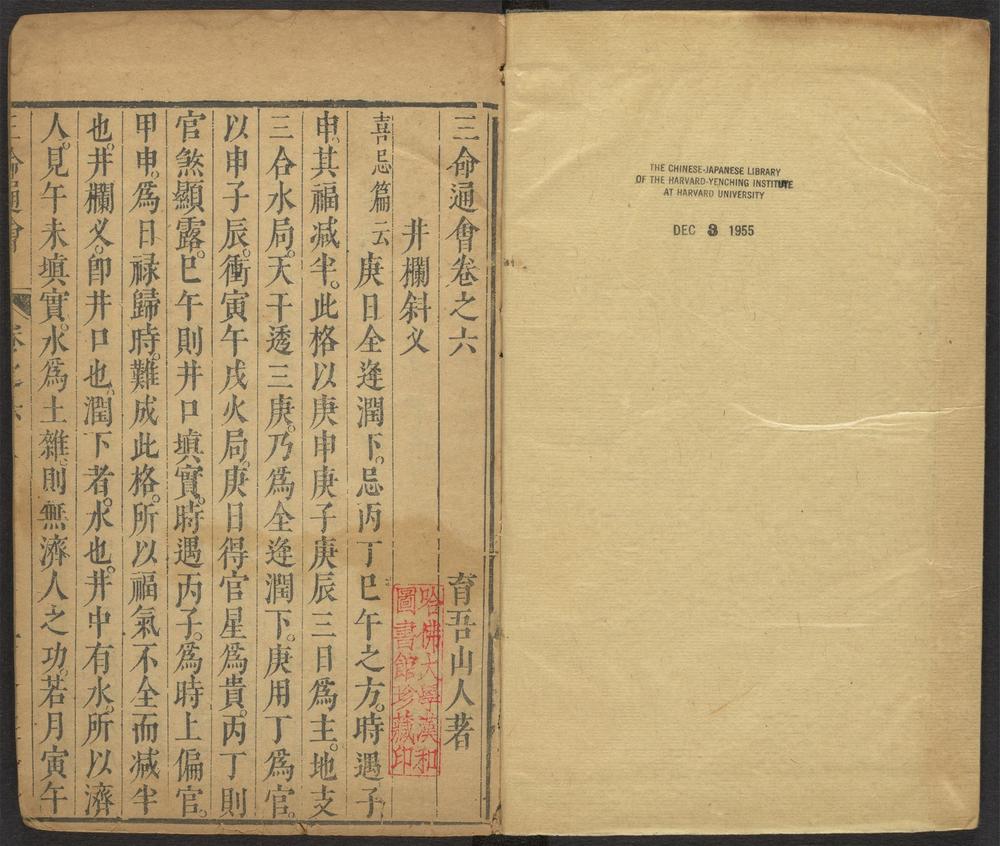 THE CHINESE-JAPANESE LIBRARY
OF THE HARVARD-YENCHING INSTITUTE
AT HARVARD UNIVERSITY
DEC 3 1955
三命通會卷之六 育吾山人著
井欄斜义
喜忌篇云庚日全逄潤下。忌丙丁巳午之方。時遇子
申。其福減半。此格以庚申庚子庚辰三日為主。地支
三合水局。天干透三庚。乃為全逄潤下。庚用丁為官。
以申子辰。衝寅午戌火局。庚日得官星為貴。丙丁則
官煞顯露。巳午則井口塡實。時遇丙子。為時上偏官。
甲申。為日祿歸時。難成此格。所以福氣不全而減半
也。井欄义。卽井口也。潤下者。水也。井中有水。所以濟
人。見午未塡實。水為土雜。則無濟人之功。若月寅午
哈佛大學漢和
圖書館珍藏印